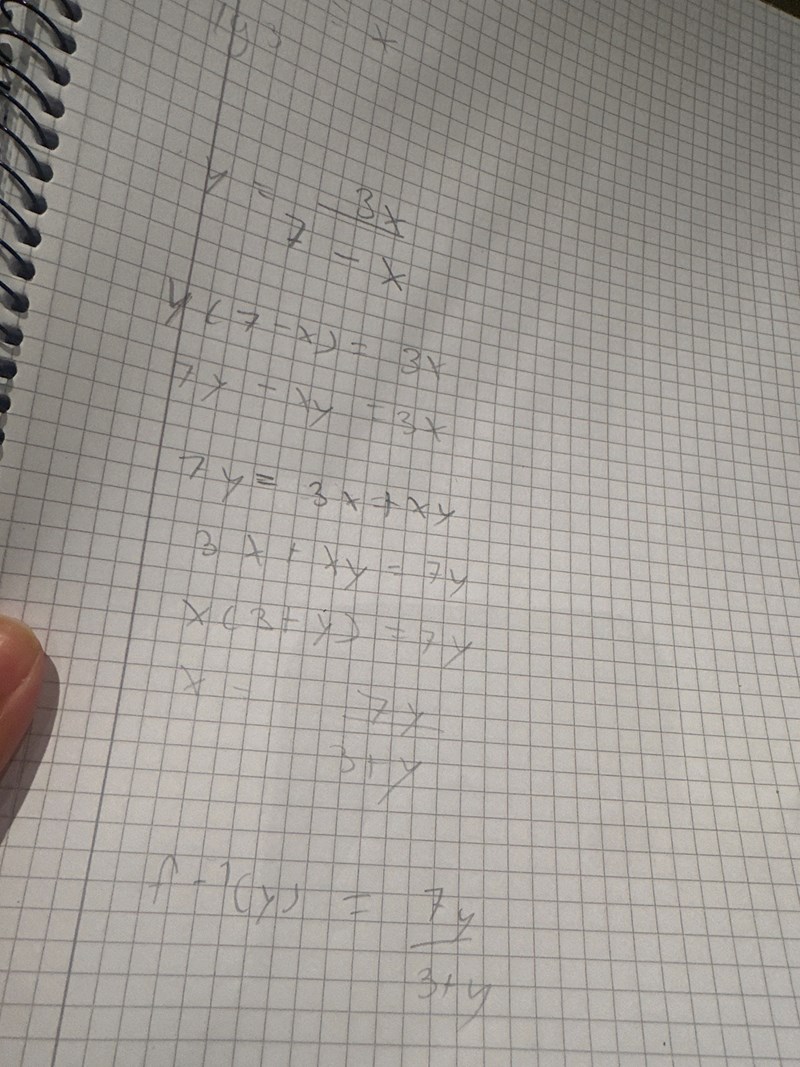 y = 3x
7 - x
y(7-x) = 3x
7y - xy = 3x
7y = 3x + xy
3x + xy = 7y
x(3+y) = 7y
x = 7y
3+y
f-1(y) = 7y
3+y